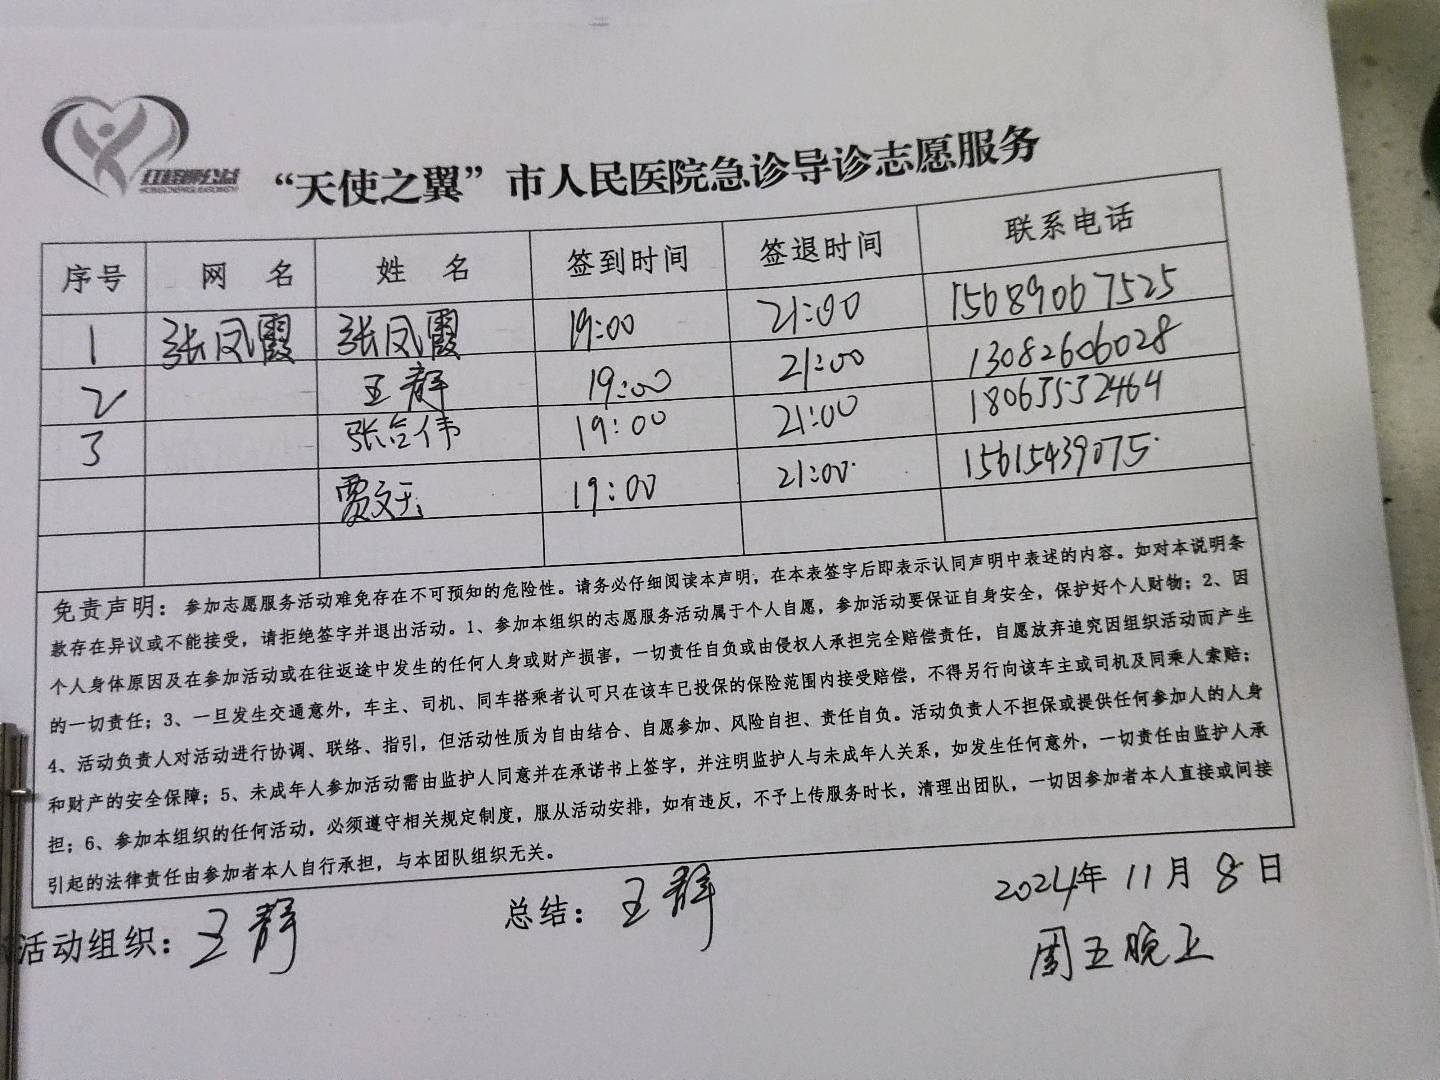 红榜样公益
“天使之翼”市人民医院急诊导诊志愿服务
序号 网 名 姓 名 签到时间 签退时间 联系电话
1 张凤霞 张凤霞 19:00 21:00 15689067525
2 王静 19:00 21:00 13082606028
3 张合伟 19:00 21:00 18063532464
贾文 19:00 21:00 15615439075
免责声明：参加志愿服务活动难免存在不可预知的危险性。请务必仔细阅读本声明，在本表签字后即表示认同声明中表述的内容。如对本说明条
款存在异议或不能接受，请拒绝签字并退出活动。1、参加本组织的志愿服务活动属于个人自愿，参加活动要保证自身安全，保护好个人财物；2、因
个人身体原因及在参加活动或在往返途中发生的任何人身或财产损害，一切责任自负或由侵权人承担完全赔偿责任，自愿放弃追究因组织活动而产生
的一切责任；3、一旦发生交通意外，车主、司机、同车搭乘者认可只在该车已投保的保险范围内接受赔偿，不得另行向该车主或司机及同乘人索赔；
4、活动负责人对活动进行协调、联络、指引，但活动性质为自由结合、自愿参加、风险自担、责任自负。活动负责人不担保或提供任何参加人的人身
和财产的安全保障；5、未成年人参加活动需由监护人同意并在承诺书上签字，并注明监护人与未成年人关系，如发生任何意外，一切责任由监护人承
担；6、参加本组织的任何活动，必须遵守相关规定制度，服从活动安排，如有违反，不予上传服务时长，清理出团队，一切因参加者本人直接或间接
引起的法律责任由参加者本人自行承担，与本团队组织无关。
活动组织：王静 总结：王静 2024年11月8日
周五晚上